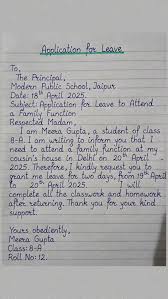 Application for Leave
To,
The Principal,
Modern Public School, Jaipur
Date: 18th April 2025.
Subject: Application for Leave to Attend
a Family Function
Respected Madam,
I am Meera Gupta, a student of class
8-A. I am writing to inform you that I
need to attend a family function at my
cousin's house in Delhi on 20th April
2025. Therefore, I kindly request you to
grant me leave for two days, from 19th April
to 20th April 2025. I will
complete all the classwork and homework
after returning. Thank you for your kind
support.
Yours obediently,
Meera Gupta
Class: 8-A
Roll No: 12.